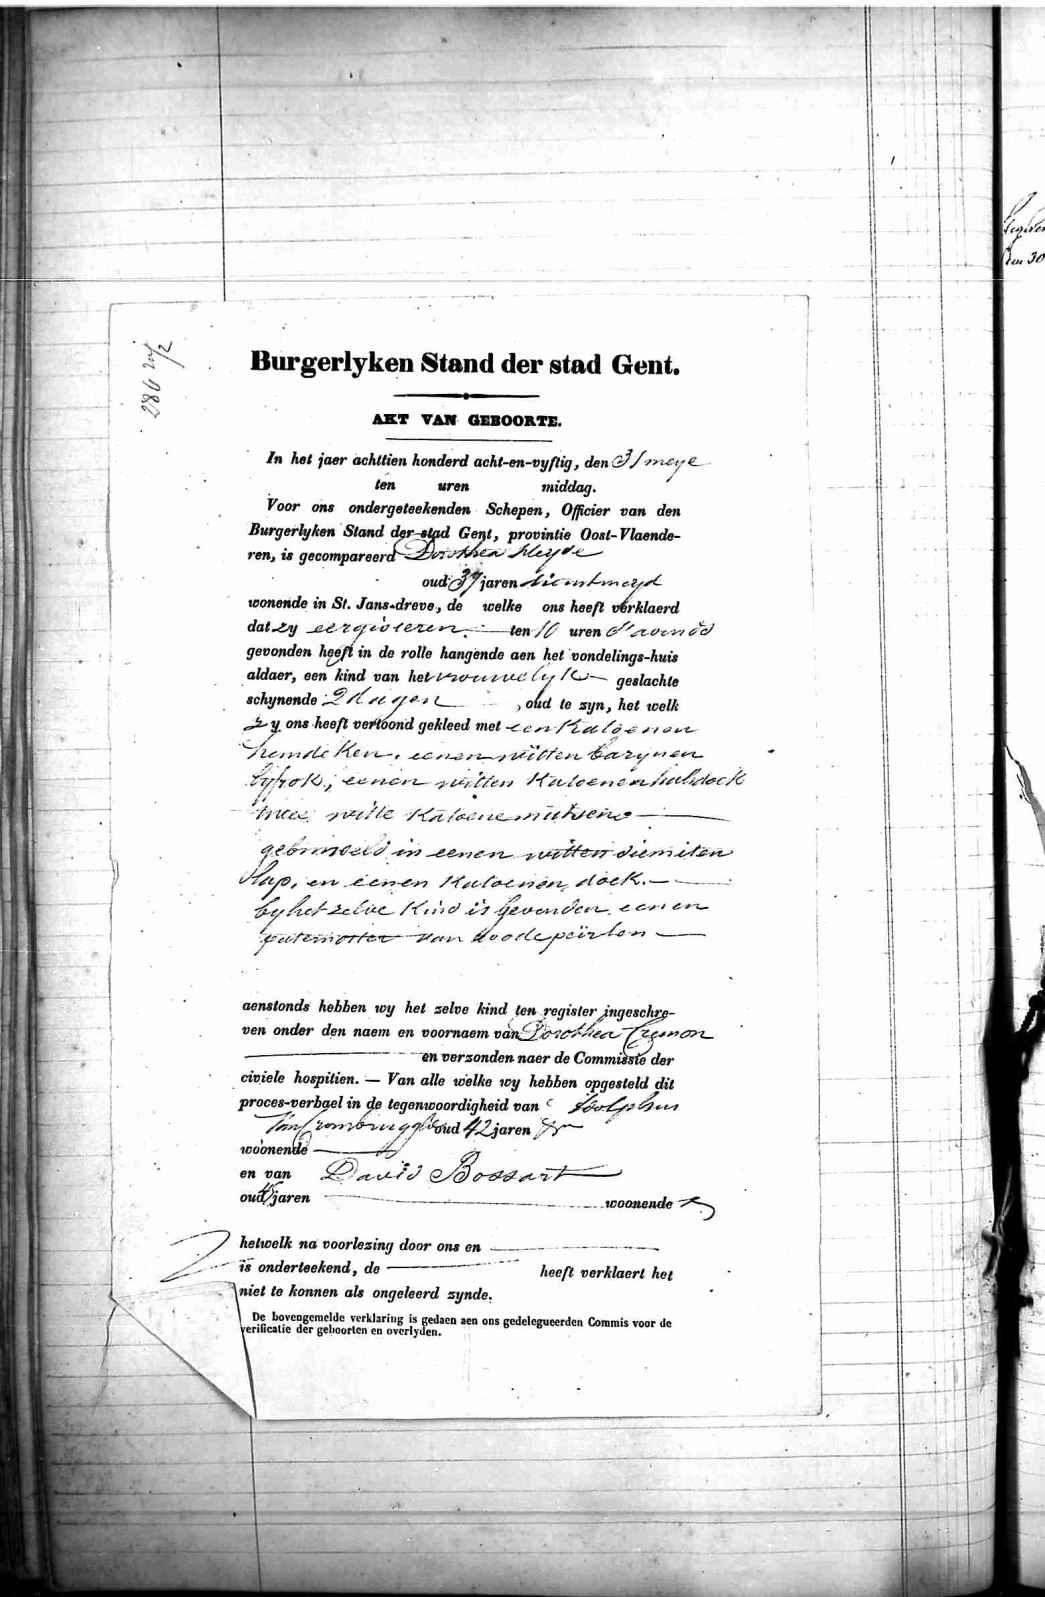 Burgerlyken Stand der stad Gent.
AKT VAN GEBOORTE.
In het jaer achttien honderd acht-en-vyftig, den 31 meye
ten uren middag.
Voor ons ondergeteekenden Schepen, Officier van den
Burgerlyken Stand der stad Gent, provintie Oost-Vlaende-
ren, is gecompareerd Dorothea
oud 37 jaren dienstmeyd
wonende in St. Jans-dreve, de welke ons heeft verklaerd
dat zy eergisteren ten 10 uren s'avonds
gevonden heeft in de rolle hangende aen het vondelings-huis
aldaer, een kind van het vrouwelyk geslachte
schynende 2 dagen, oud te zyn, het welk
zy ons heeft vertoond gekleed met een Katoenen
hemdeken, eenen witten bazynen
lyfrok, eenen witten Katoenen halsdoek
twee witte Katoene mutsen
gebunseld in eenen witten diemiten
slap, en eenen Katoenen doek.
by het zelve Kind is gevonden eenen
paternoster van roode peirlen
aenstonds hebben wy het zelve kind ten register ingeschre-
ven onder den naem en voornaem van Dorothea Cremon
en verzonden naer de Commissie der
civiele hospitien. — Van alle welke wy hebben opgesteld dit
proces-verbael in de tegenwoordigheid van Adolphus
Van Crombrugghe oud 42 jaren
woonende
en van David Bossart
oud jaren woonende
hetwelk na voorlezing door ons en
is onderteekend, de heeft verklaert het
niet te konnen als ongeleerd zynde.
De bovengemelde verklaring is gedaen aen ons gedelegueerden Commis voor de
verificatie der geboorten en overlyden.